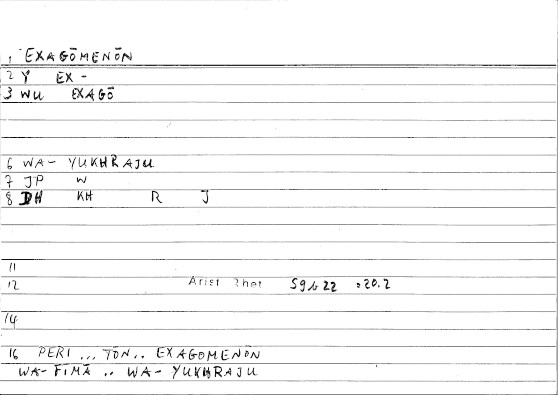 1 EXAGŌMENŌN
2 Y EX -
3 WU EXAGŌ
6 WA- YUKHRAJU
7 JP W
8 DH KH R J
11
12 Arist Rhet 59b22 :20.2
14
16 PERI ... TŌN.. EXAGOMENŌN
WA- FĪMĀ .. WA- YUKHRAJU